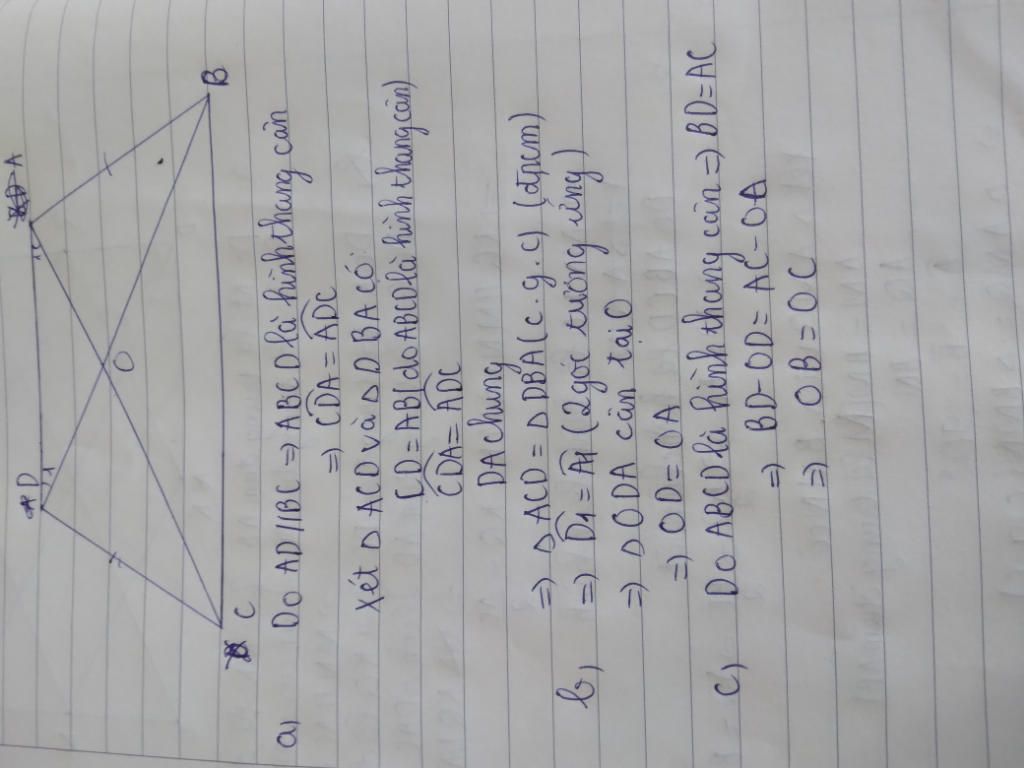 D
A
1
O
C
B
a) Do AD//BC => ABCD là hình thang cân
=> CDA = ADC
Xét Δ ACD và Δ DBA có:
CD = AB (do ABCD là hình thang cân)
CDA = ADC
DA chung
=> Δ ACD = Δ DBA (c.g.c) (đpcm)
b) => D1 = A1 (2 góc tương ứng)
=> Δ ODA cân tại O
=> OD = OA
c) Do ABCD là hình thang cân => BD = AC
=> BD - OD = AC - OA
=> OB = OC